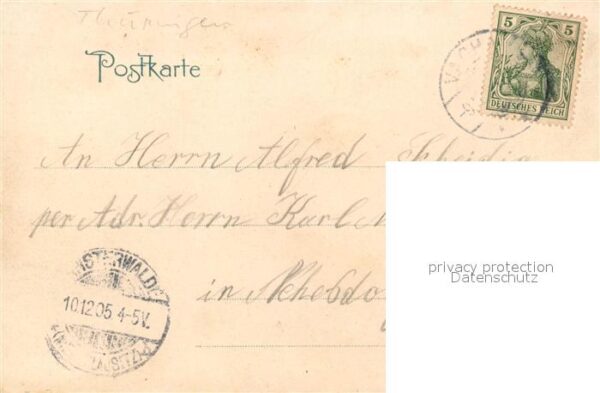 Thüringen
Postkarte
5 5
DEUTSCHES REICH
An Herrn Alfred Scheidig
per Adr. Herrn Karl
in
FINSTERWALDE
10.12.05 4-5V.
privacy protection
Datenschutz